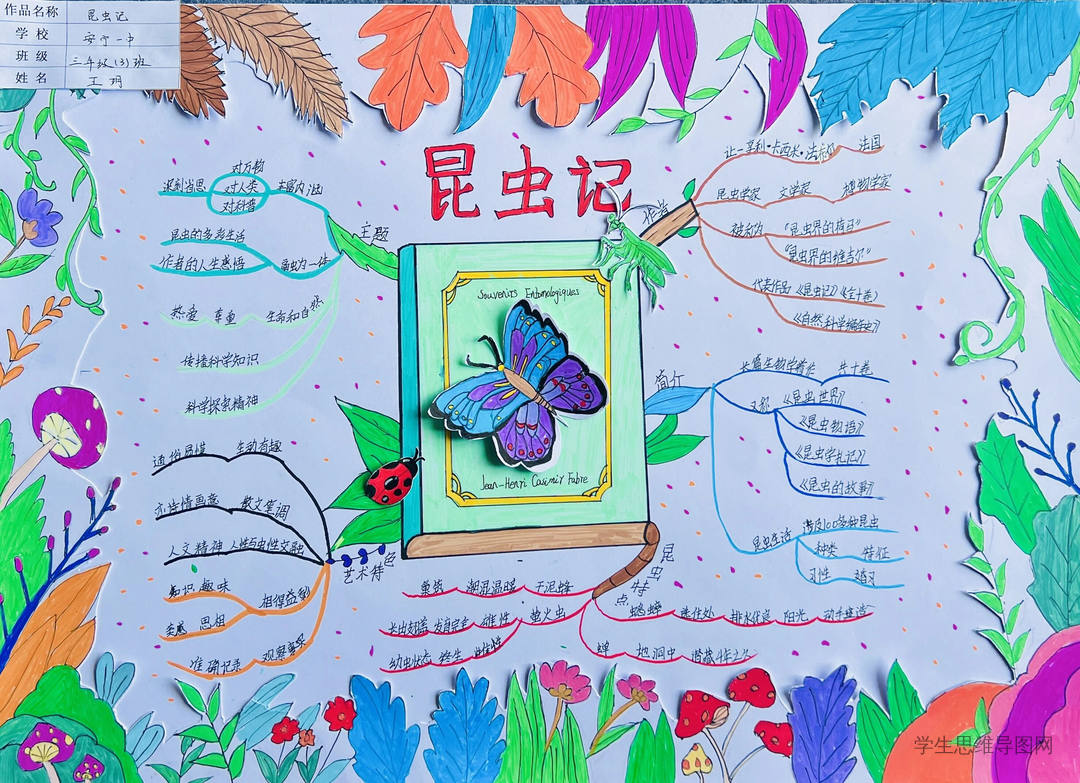 作品名称 昆虫记
学校 安宁一中
班级 三年级(3)班
姓名 王玥
昆虫记
Souvenirs Entomologiques
Jean-Henri Casimir Fabre
主题
对万物
对人类
对科普
昆虫的多彩生活
作者的人生感悟
人虫为一体
热爱 尊重 生命和自然
传播科学知识
科学探索精神
艺术特色
通俗易懂 生动有趣
诗情画意 散文笔调
人文精神 人性与虫性交融
知识 趣味 相得益彰
美感 思想
准确记录 观察
作者
法国
昆虫学家 文学家 博物学家
被称为 "昆虫界的荷马"
"昆虫界的维吉尔"
代表作品 《昆虫记》《全十卷》
《自然科学编年史》
简介
长篇生物学著作 共十卷
又称 《昆虫世界》
《昆虫物语》
《昆虫学札记》
《昆虫的故事》
昆虫生活 涉及100多种昆虫
种类 特征
习性
昆虫特点
巢穴 潮湿温暖 干泥蜂
萤火虫
雄性
幼虫状态 终生 雌性
蟋蟀 选住处 排水优良 阳光
蝉 地洞中 潜藏4年之久
学生思维导图网